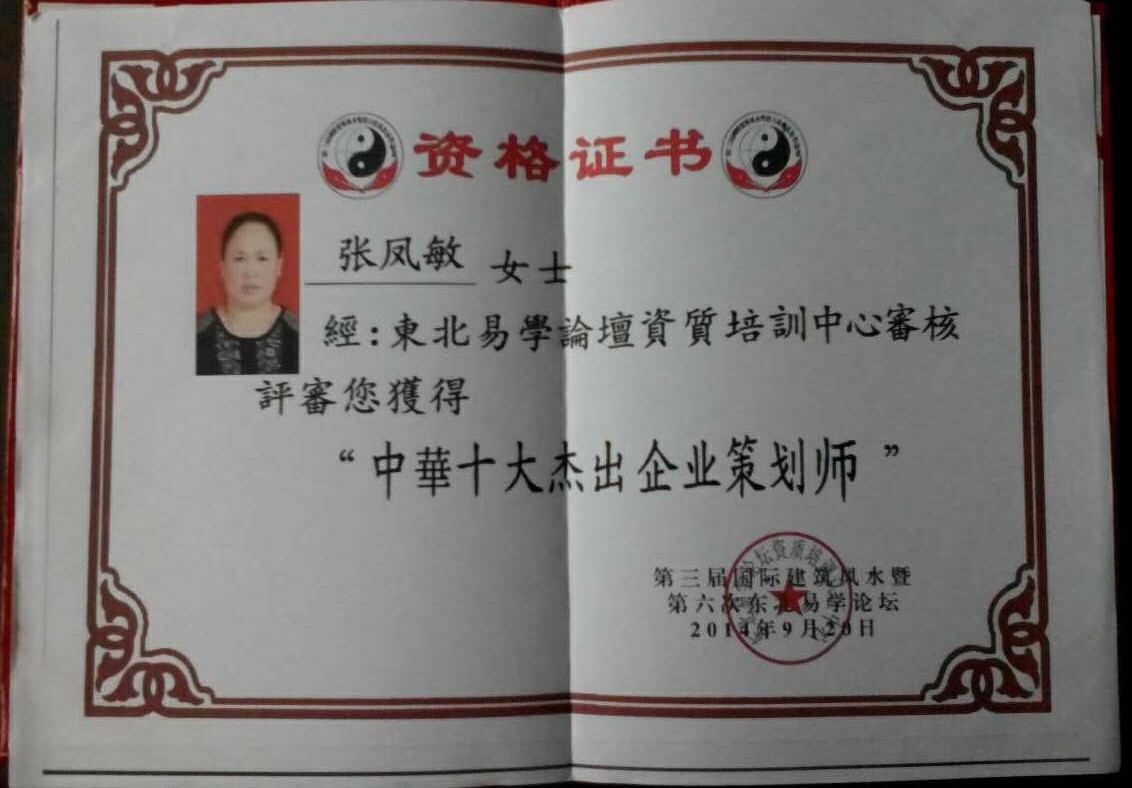 资格证书
张凤敏 女士
經:東北易學論壇資質培訓中心審核
評審您獲得
“中華十大杰出企业策划师”
第三届国际建筑风水暨
第六次东北易学论坛
2014年9月20日